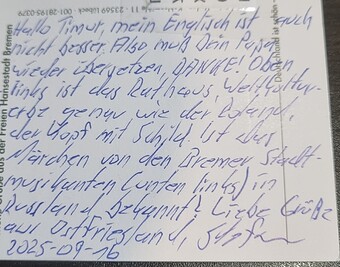 23569 Lübeck · 001-28195-0379
Hallo Timur, mein Englisch ist auch
nicht besser. Also, muß Dein Papa
wieder übersetzen, DANKE! Oben
links ist das Rathaus, Weltkultur-
erbe genau wie der Roland,
der Kopf mit Schild. Ist das
Märchen von den Bremer Stadt-
musikanten (unten links) in
Russland bekannt? Liebe Grüße
aus Ostfriesland,
2025-09-16
Grüße aus der Freien Hansestadt Bremen
Deutschland ist schön